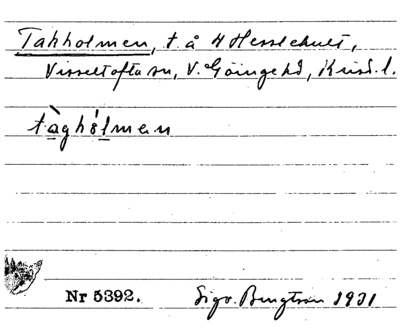 Takholmen, t. å N Hesslehult,
Visseltofta sn, V. Göinge hd, Krist. l.
tàghólmen
Nr 5392. Sigv. Bengtson 1931